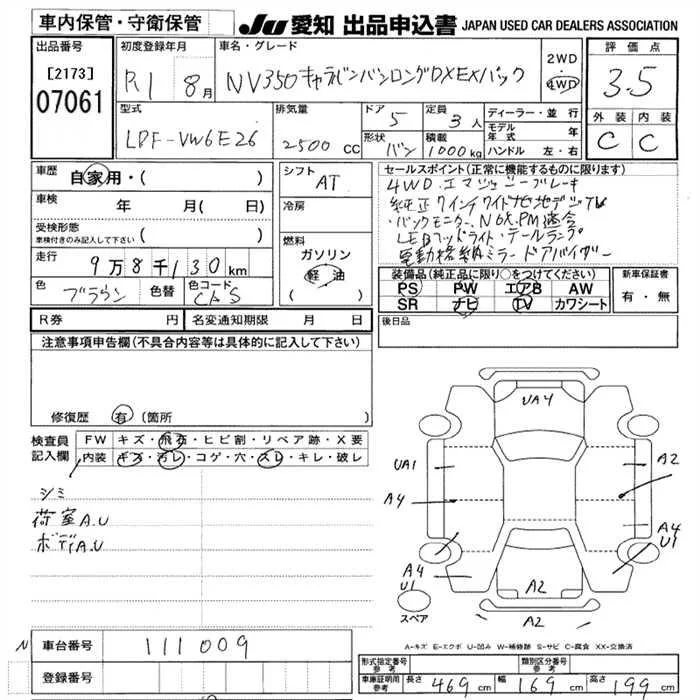 車内保管・守衛保管
JU 愛知 出品申込書 JAPAN USED CAR DEALERS ASSOCIATION
出品番号
[2173]
07061
初度登録年月
R1 8月
車名・グレード
NV350キャラバンバンロングDXEXパック
2WD
4WD
評価点
3.5
外装 内装
C C
型式
LDF-VW6E26
排気量
2500 cc
ドア
5
形状
バン
定員
3人
積載
1000kg
ディーラー・並行
モデル年式 年
ハンドル 左・右
車歴
自家用・( )
車検
年 月(日)
受検形態
車検付きのみ記入して下さい ( )
走行
9万8千130km
色
ブラウン
色替
色コード
CAS
シフト
AT
冷房
燃料
ガソリン
軽油
セールスポイント(正常に機能するものに限り)
4WD.エマージェンシーブレーキ
純正7インチワイドナビ地デジTV
・バックモニター. NOX.PM適合
LEDヘッドライト・テールランプ
電動格納ミラー ドアバイザー
装備品(純正品に限り○をつけてください)
PS PW エアB AW
SR ナビ TV カワシート
新車保証書
有・無
R券 円
名変通知期限 月 日
後日品
注意事項申告欄(不具合内容等は具体的に記入して下さい)
修復歴 有(箇所 )
検査員記入欄
FW キズ・飛石・ヒビ割・リペア跡・X要
内装 キズ・汚レ・コゲ・穴・スレ・キレ・破レ
シミ
荷室A.U
ボディA.U
UA4
UA1
A4
A2
A4
U1
A4
U1
A2
A2
スペア
A-キズ E-エクボ U-凹み W-補修跡 S-サビ C-腐食 XX-交換済
N 車台番号 111009
登録番号
形式指定番号 参考
類別区分番号 参考
車庫証明用 参考 長さ 469cm 幅 169cm 高さ 199cm